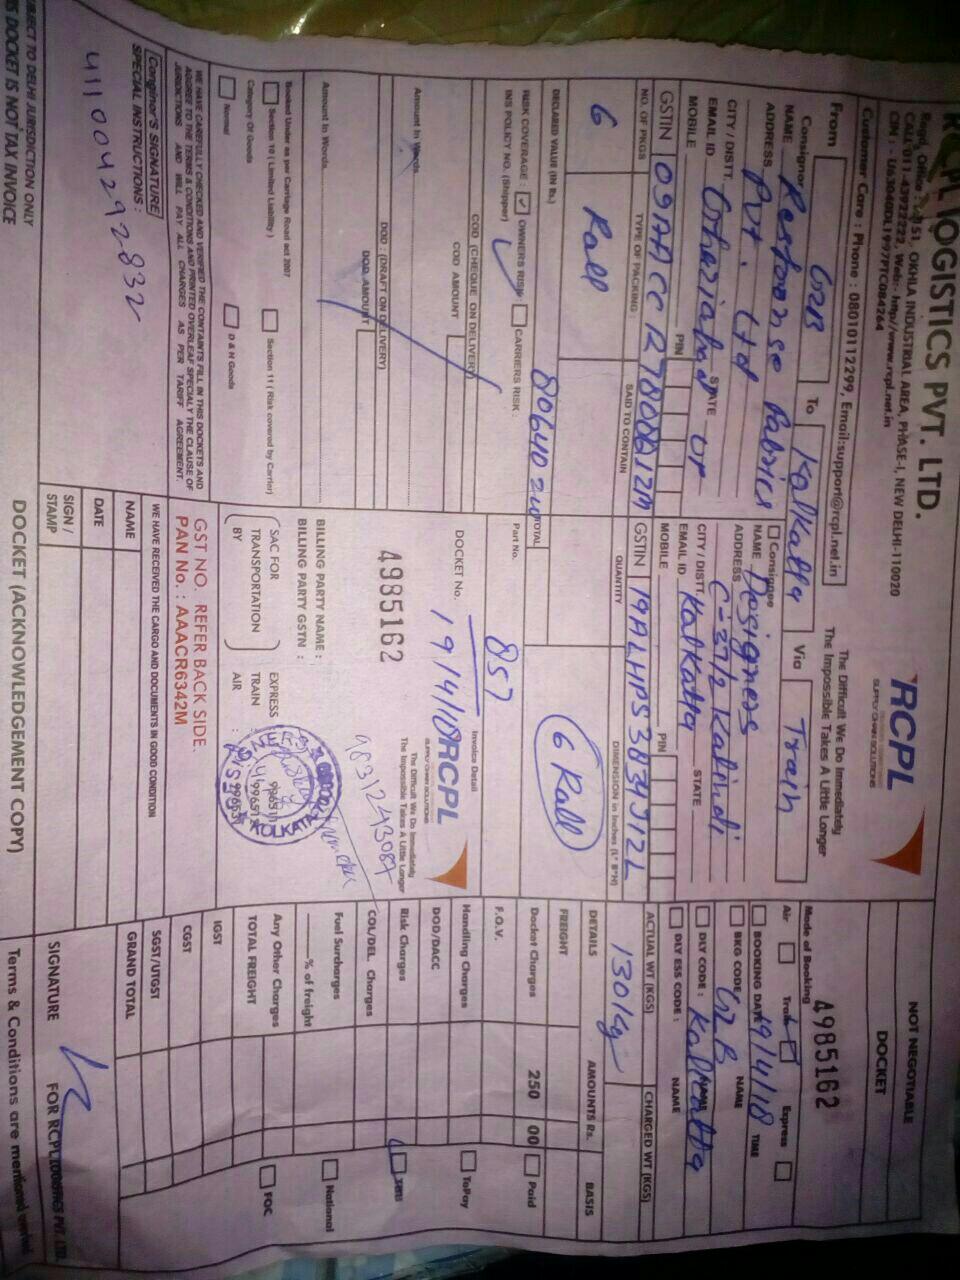 LOGISTICS PVT. LTD.
OKHLA INDUSTRIAL AREA, PHASE-I, NEW DELHI-110020
CIN : - U63040DL1997PTC084264
Customer Care : Phone : 08010112299, Email:support@rcpl.net.in
RCPL
SUPPLY CHAIN SOLUTIONS
The Difficult We Do Immediately
The Impossible Takes A Little Longer
NOT NEGOTIABLE
DOCKET
4985162
From GZB To Kalkatta Via Train
Mode of Booking
Air Train Express
Consignor
NAME
ADDRESS Pvt. Ltd
CITY / DISTT. Ghaziabad STATE UP
EMAIL ID
MOBILE PIN
GSTIN
Consignee
NAME Designers
ADDRESS C-37/2 Kalindi
CITY / DISTT. Kalkatta STATE
EMAIL ID
MOBILE PIN
GSTIN 19ALHPS3839J1ZL
BOOKING DATE 19/4/18 TIME
BKG CODE : GZB NAME
DLY CODE : Kalkatta NAME
DLY ESS CODE : NAME
NO. OF PKGS TYPE OF PACKING: SAID TO CONTAIN QUANTITY DIMENSION in Inches (L* B*H) ACTUAL WT (KGS) CHARGED WT (KGS)
6 Roll 6 Roll 130 kg
DECLARED VALUE (IN Rs.) TOTAL
RISK COVERAGE : OWNERS RISK CARRIERS RISK :
INS POLICY NO. (Shipper)
Part No. 857
COD (CHEQUE ON DELIVERY)
COD AMOUNT
Amount In Words
DOD : (DRAFT ON DELIVERY)
DOD AMOUNT
Amount In Words.
DOCKET No. Invoice Detail
19/4/18
4985162
RCPL
SUPPLY CHAIN SOLUTIONS
The Difficult We Do Immediately
The Impossible Takes A Little Longer
BILLING PARTY NAME :
BILLING PARTY GSTN :
SAC FOR TRANSPORTATION BY
EXPRESS
TRAIN
AIR
KOLKATA
GST NO. REFER BACK SIDE.
PAN No. : AAACR6342M
Booked Under as per Carriage Road act 2007
Section 10 ( Limited Liability ) Section 11 ( Risk covered by Carrier)
Category Of Goods
Normal D & H Goods
WE HAVE CAREFULLY CHECKED AND VERIFIED THE CONTAINTS FILL IN THIS DOCKETS AND
AGGREE TO THE TERMS & CONDITIONS AND PRINTED OVERLEAF SPECIALY THE CLAUSE OF
JURISDICTIONS AND WILL PAY ALL CHARGES AS PER TARIFF AGREEMENT.
Congino'S SIGNATURE
SPECIAL INSTRUCTIONS :
411004292832
WE HAVE RECEIVED THE CARGO AND DOCUMENTS IN GOOD CONDITION
NAME
DATE
SIGN / STAMP
DETAILS AMOUNTS Rs. BASIS
FREIGHT
Docket Charges 250 00 Paid
F.O.V.
Handling Charges ToPay
DOD/DACC
Risk Charges TBB
COL/DEL Charges
Fuel Surcharges
% of freight National
Any Other Charges
TOTAL FREIGHT FOC
IGST
CGST
SGST/UTGST
GRAND TOTAL
SIGNATURE FOR RCPL LOGISTICS PVT. LTD.
SUBJECT TO DELHI JURISDICTION ONLY
THIS DOCKET IS NOT TAX INVOICE
DOCKET (ACKNOWLEDGEMENT COPY)
Terms & Conditions are mentioned